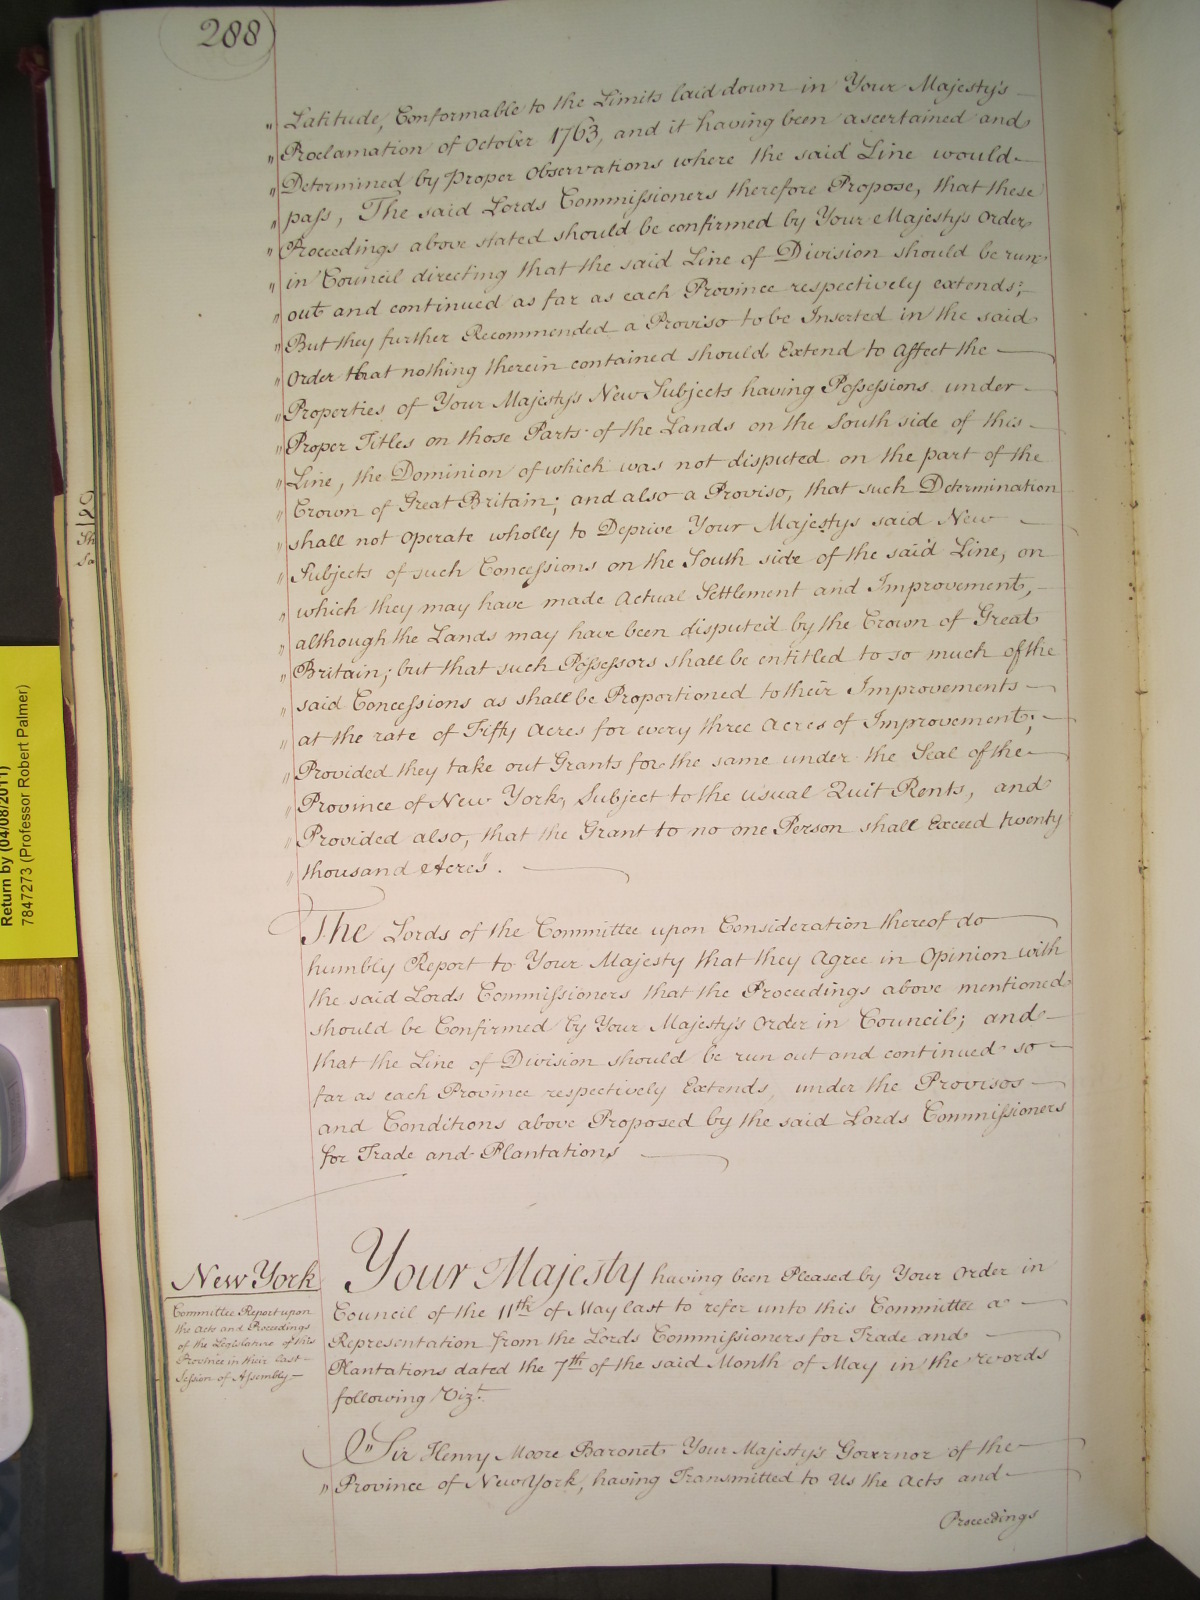 288
" Latitude, Conformable to the Limits laid down in Your Majesty's
" Proclamation of October 1763, and it having been ascertained and
" Determined by proper Observations where the said Line would
" paſs, The said Lords Commiſsioners therefore Propose, that these
" Proceedings above stated should be confirmed by Your Majesty's Order
" in Council directing that the said Line of Division should be run
" out and continued as far as each Province respectively extends;
" But they further Recommended a Proviso to be Inserted in the said
" Order that nothing therein contained should Extend to affect the
" Properties of Your Majesty's New Subjects having Poſseſsions under
" Proper Titles on those Parts of the Lands on the South side of this
" Line, the Dominion of which was not disputed on the part of the
" Crown of Great Britain; and also a Proviso, that such Determination
" shall not operate wholly to Deprive Your Majestys said New
" Subjects of such Conceſsions on the South side of the said Line, on
" which they may have made actual Settlement and Improvement,
" although the Lands may have been disputed by the Crown of Great
" Britain; but that such Poſseſsors shall be entitled to so much of the
" said Conceſsions as shall be Proportioned to their Improvements
" at the rate of Fifty Acres for every three Acres of Improvement;
" Provided they take out Grants for the same under the Seal of the
" Province of New York, Subject to the usual Quit Rents, and
" Provided also, that the Grant to no one Person shall Exceed twenty
" thousand Acres".
The Lords of the Committee upon Consideration thereof do
humbly Report to Your Majesty that they Agree in Opinion with
the said Lords Commiſsioners that the Proceedings above mentioned
should be Confirmed by Your Majesty's Order in Council; and
that the Line of Division should be run out and continued so
far as each Province respectively Extends, under the Provisos
and Conditions above Proposed by the said Lords Commiſsioners
for Trade and Plantations
New York
Committee Report upon
the Acts and Proceedings
of the Legislature of this
Province in their last
Seſsion of Aſsembly
Your Majesty having been Pleased by Your Order in
Council of the 11th of May last to refer unto this Committee a
Representation from the Lords Commiſsioners for Trade and
Plantations dated the 7th of the said Month of May in the words
following Vizt.
" Sir Henry Moore Baronet Your Majesty's Governor of the
" Province of New York, having Transmitted to Us the Acts and
Proceedings
Return by (04/08/2011)
7847273 (Professor Robert Palmer)